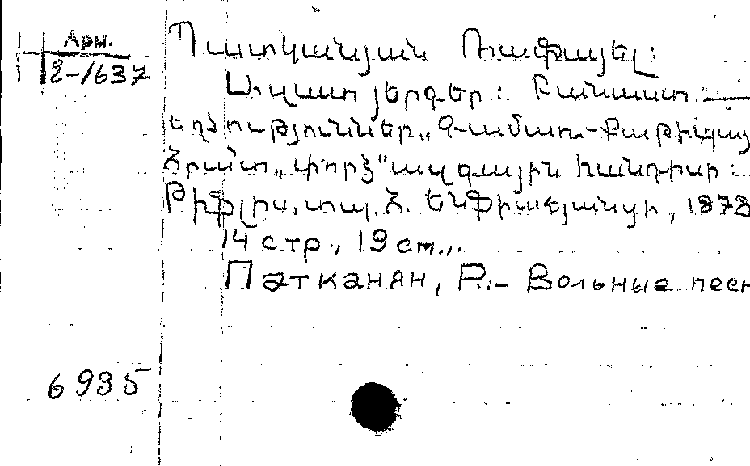 Арм.
2-1637
Պատկանյան Ռափայել:
Ազատ յերգեր: Բանաստ-
եղծություններ „Գամառ-Քաթիպայ
Տրամա „Փորձ“ ազգային հանդիսի:
Թիֆլիս, տպ. Հ. Ենֆիաճյանցի, 1878
14 стр., 19 см...
Патканян, Р.- Вольные песн
6935